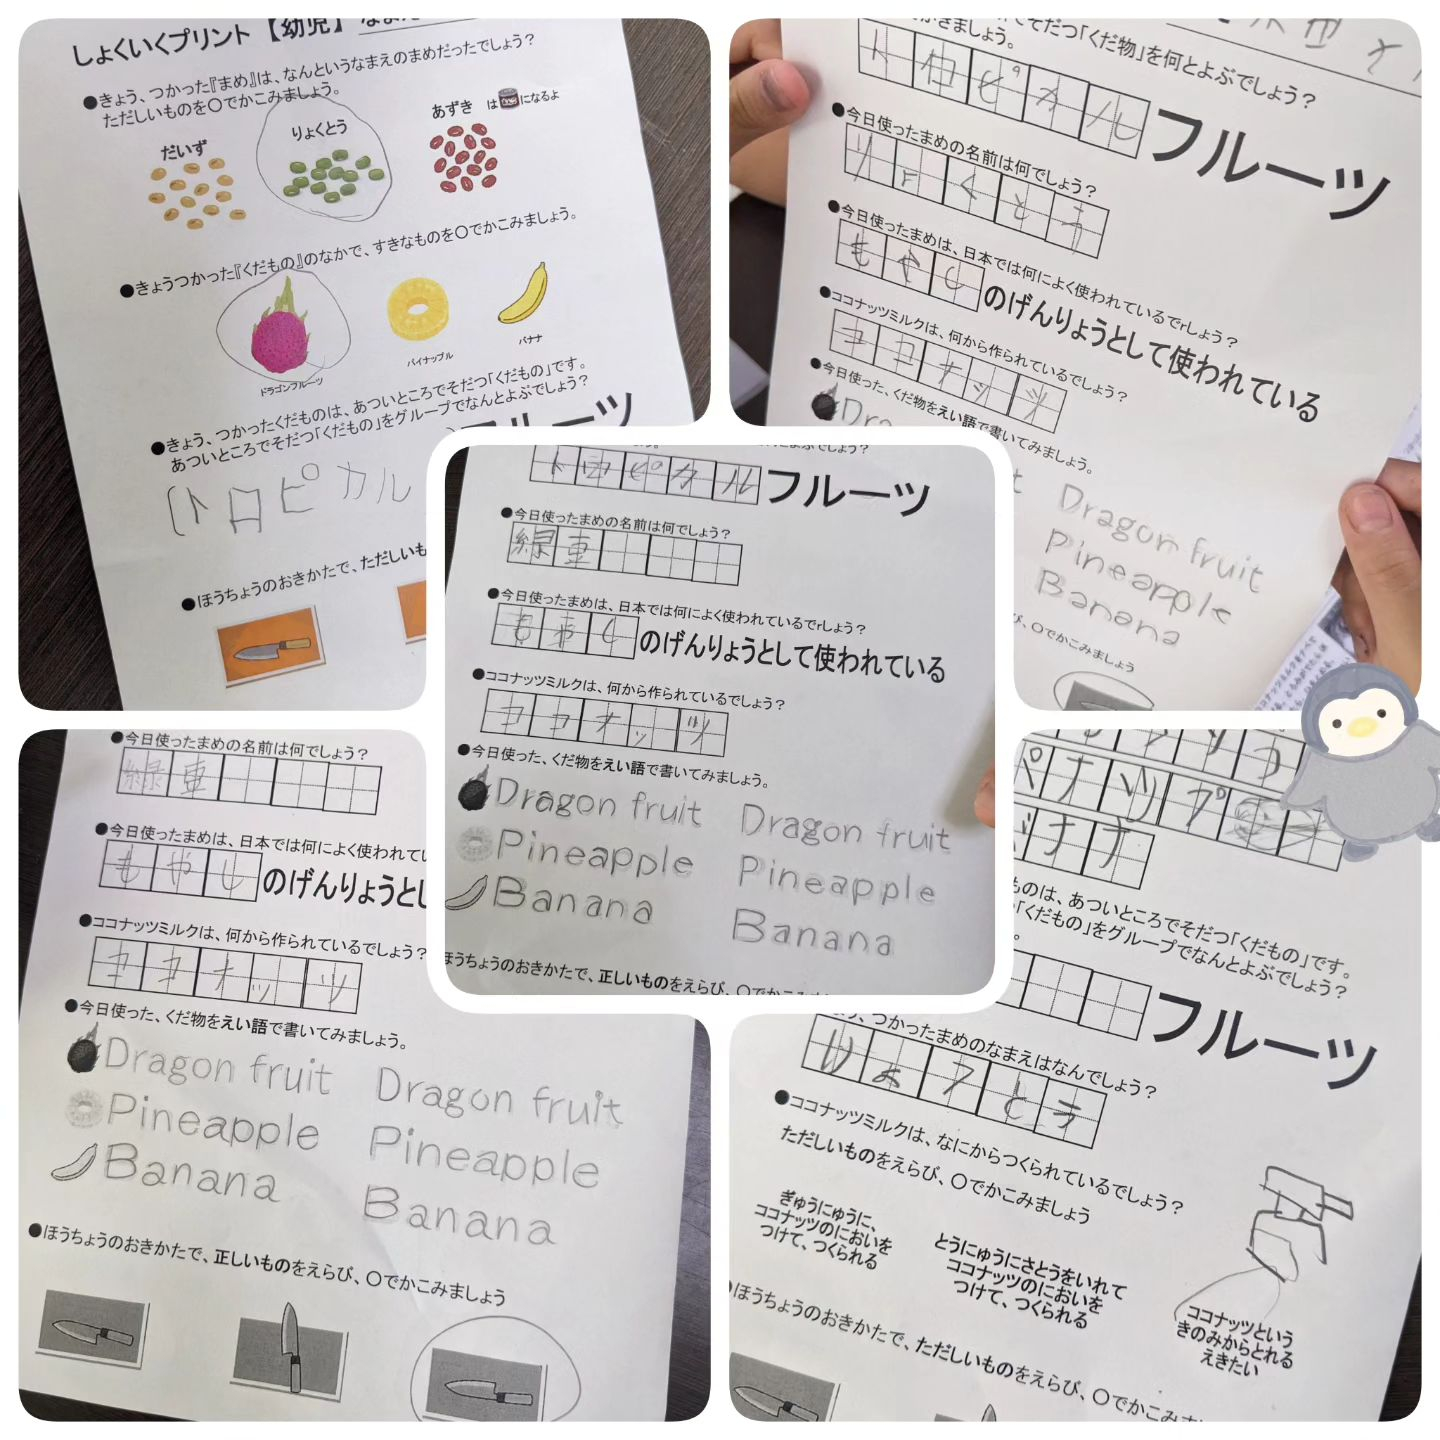 しょくいくプリント 【幼児】
●きょう、つかった『まめ』は、なんというなまえのまめだったでしょう?
ただしいものを〇でかこみましょう。
だいず
りょくとう
あずき
は になるよ
●きょうつかった『くだもの』のなかで、すきなものを〇でかこみましょう。
ドラゴンフルーツ
パイナップル
バナナ
●きょう、つかったくだものは、あついところでそだつ「くだもの」です。
あついところでそだつ「くだもの」をグループでなんとよぶでしょう?
トロピカル
フルーツ
●ほうちょうのおきかたで、ただしいも
でそだつ「くだ物」を何とよぶでしょう?
かきましょう。
トロピカル フルーツ
●今日使ったまめの名前は何でしょう?
りょくとう
●今日使ったまめは、日本では何によく使われているでrしょう?
もやし のげんりょうとして使われている
●ココナッツミルクは、何から作られているでしょう?
ココナッツ
●今日使った、くだ物をえい語で書いてみましょう。
Dra
Dragon fruit
Pineapple
Banana
び、〇でかこみましょう
トロピカル フルーツ
●今日使ったまめの名前は何でしょう?
緑豆
●今日使ったまめは、日本では何によく使われているでrしょう?
もやし のげんりょうとして使われている
●ココナッツミルクは、何から作られているでしょう?
ココナッツ
●今日使った、くだ物をえい語で書いてみましょう。
Dragon fruit Dragon fruit
Pineapple Pineapple
Banana Banana
ほうちょうのおきかたで、正しいものをえらび、〇でかこみ
●今日使ったまめの名前は何でしょう?
緑豆
●今日使ったまめは、日本では何によく使われてい
もやし のげんりょうとし
●ココナッツミルクは、何から作られているでしょう?
ココナッツ
●今日使った、くだ物をえい語で書いてみましょう。
Dragon fruit Dragon fruit
Pineapple Pineapple
Banana Banana
●ほうちょうのおきかたで、正しいものをえらび、〇でかこみましょう
ナツプ
バナナ
ものは、あついところでそだつ「くだもの」です。
「くだもの」をグループでなんとよぶでしょう?
フルーツ
、つかったまめのなまえはなんでしょう?
りょクとう
●ココナッツミルクは、なにからつくられているでしょう?
ただしいものをえらび、〇でかこみましょう
ぎゅうにゅうに、
ココナッツのにおいを
つけて、つくられる
とうにゅうにさとうをいれて
ココナッツのにおいを
つけて、つくられる
ココナッツという
きのみからとれる
えきたい
ほうちょうのおきかたで、ただしいものをえらび、〇でかこみま